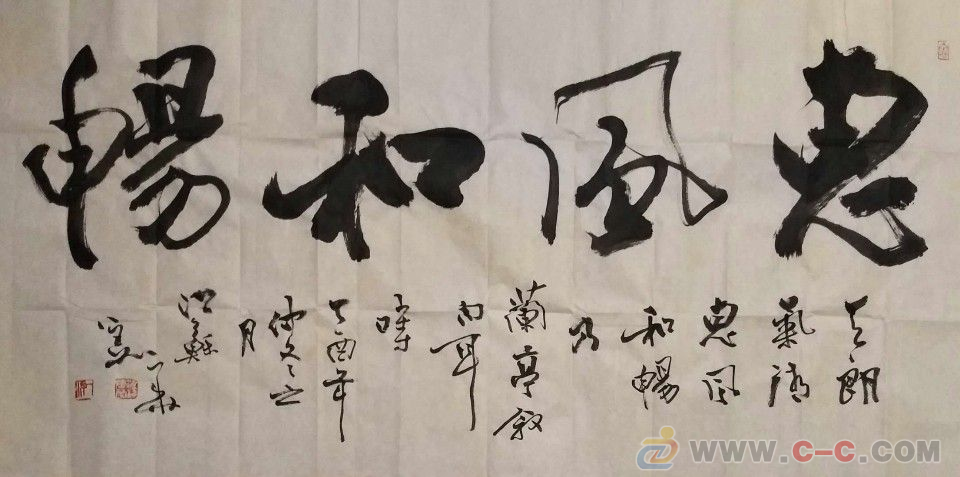 惠风和暢
天朗
氣清
惠风
和暢
乃
蘭亭叙
内耳
時
丁酉年
仲冬之
月
江蘇
WWW.C-C.COM